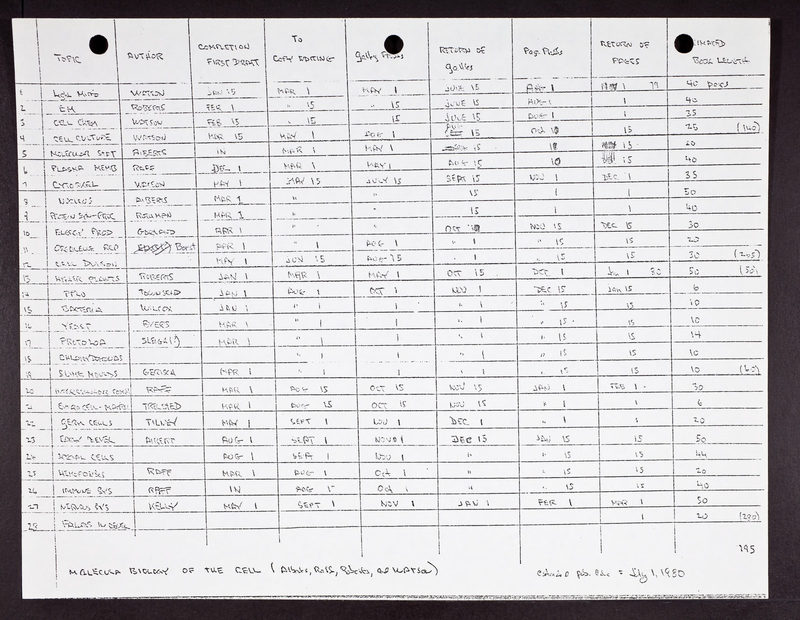 TOPIC AUTHOR COMPLETION FIRST DRAFT TO COPY EDITING Galley Proofs RETURN OF Galleys Page Proofs RETURN OF PAGES BOOK LENGTH
1 WATSON JAN 15 MAR 1 MAY 1 JUNE 15 AUG 1 1 79 40 pages
2 EM ROBERTS FEB 1 " 15 " 15 JUNE 15 AUG 1 1 40
3 CELL CHEM WATSON FEB 15 " 15 " 15 JUNE 15 AUG 1 1 35
4 CELL CULTURE WATSON MAR 15 MAY 1 AUG 1 15 Oct 10 15 25 (140)
5 MOLECULAR ALBERTS IN MAR 1 MAY 1 15 10 15 20
6 PLASMA MEMB RAFF DEC 1 MAR 1 MAY 1 AUG 15 10 15 40
7 CYTOSKEL WATSON MAY 1 MAY 15 JULY 15 SEPT 15 NOV 1 DEC 1 35
8 NUCLEUS ALBERTS MAR 1 " " 15 1 1 50
9 MAR 1 " " 15 1 1 40
10 ENERGY PROD APR 1 " " OCT NOV 15 DEC 15 30
11 Borst APR 1 " 1 AUG 1 " 1 " 15 15 20
12 CELL DIVISION MAY 1 JUN 15 AUG 15 " 1 " 15 15 30 (205)
13 HIGHER PLANTS ROBERTS JAN 1 MAR 1 MAY 1 OCT 15 DEC 1 Jan 1 80 50 (50)
14 TOWNSEND JAN 1 AUG 1 OCT 1 NOV 1 DEC 15 JAN 15 6
15 BACTERIA WILCOX JAN 1 " 1 1 " 1 " 15 15 10
16 YEAST MAR 1 " 1 1 " 1 " 15 15 10
17 PROTOZOA SLEIGH (?) MAR 1 " 1 1 " 1 " 15 15 14
18 CHLAMYDOMONAS " 1 1 " 1 " 15 15 10
19 SLIME MOULDS GERISCH MAR 1 " 1 1 1 " 15 15 10 (60)
20 RAFF MAR 1 AUG 15 OCT 15 NOV 15 JAN 1 FEB 1 30
21 MAR 1 AUG 15 OCT 15 NOV 15 " 1 1 6
22 GERM CELLS TILNEY MAY 1 SEPT 1 NOV 1 DEC 1 " 1 1 20
23 EARLY DEVEL ALBERT AUG 1 SEPT 1 NOV 1 DEC 15 JAN 15 15 50
24 CELLS AUG 1 SEPT 1 NOV 1 " " 15 15 44
25 RAFF MAR 1 AUG 1 Oct 1 " " 15 15 20
26 IMMUNE SYS RAFF IN AUG 1 Oct 1 " " 15 15 40
27 NERVOUS SYS KELLY MAY 1 SEPT 1 NOV 1 JAN 1 FEB 1 MAR 1 50
28 IN DEVEL 1 20 (290)
795
MOLECULA BIOLOGY OF THE CELL (Alberts, Raff, Roberts, and WATSON) estimated pub. date = July 1, 1980